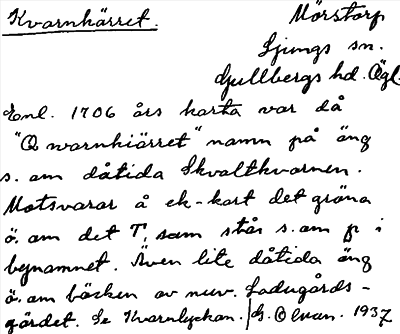 Kvarnkärret.
Mörstorp
Ljungs sn.
Gullbergs hd. Ögl.
Enl. 1706 års karta var då
"Qwarnkiärret" namn på äng
s. om dåtida Skvaltkvarnen.
Motsvarar å ek-kart det gröna
ö. om det T, som står s. om p i
bynamnet. Även lite dåtida äng
ö. om bäcken av nuv. Ladugårds-
gärdet. Se Kvarnlyckan. G. 1937